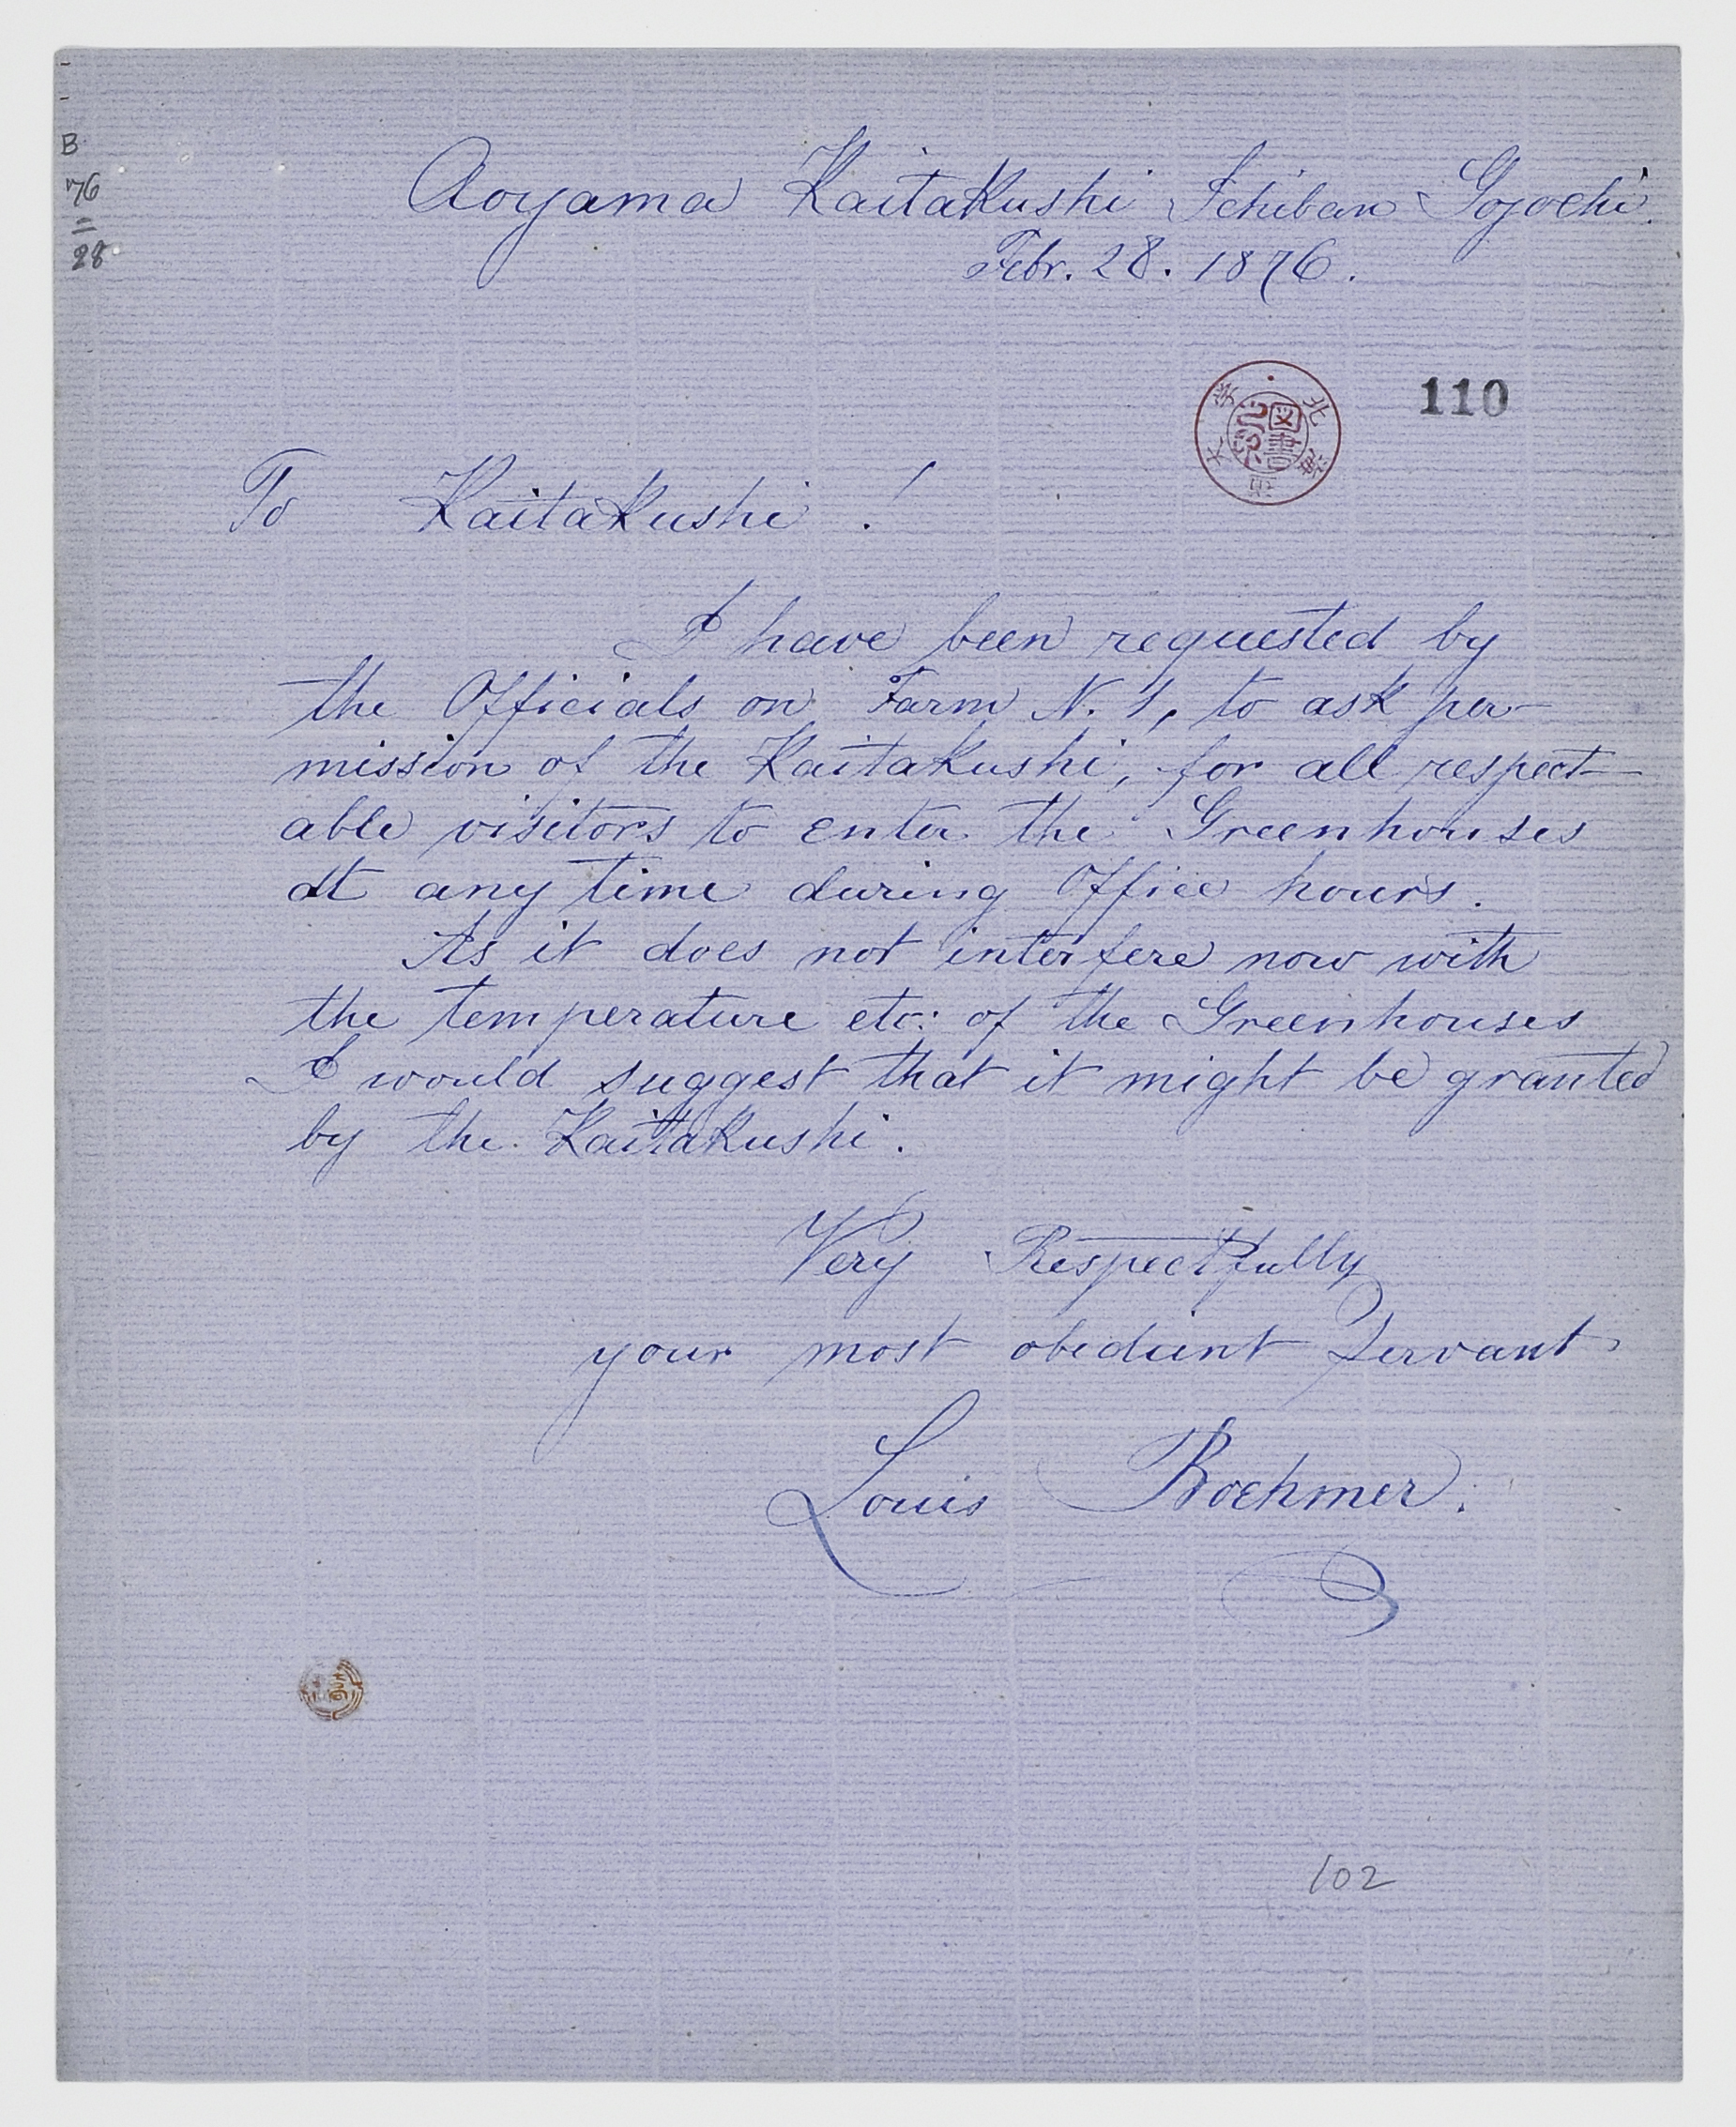 B
76
=
28
Aoyama Kaitakushi Ichiban Gojochi.
Febr. 28. 1876.
110
北海道大学
図書之印
To Kaitakushi !
I have been requested by
the Officials on Farm N. 1, to ask per-
mission of the Kaitakushi, for all respect-
able visitors to enter the Greenhouses
at any time during Office hours.
As it does not interfere now with
the temperature etc: of the Greenhouses
I would suggest that it might be granted
by the Kaitakushi.
Very Respectfully
your most obedient Servant
Louis Boehmer.
102